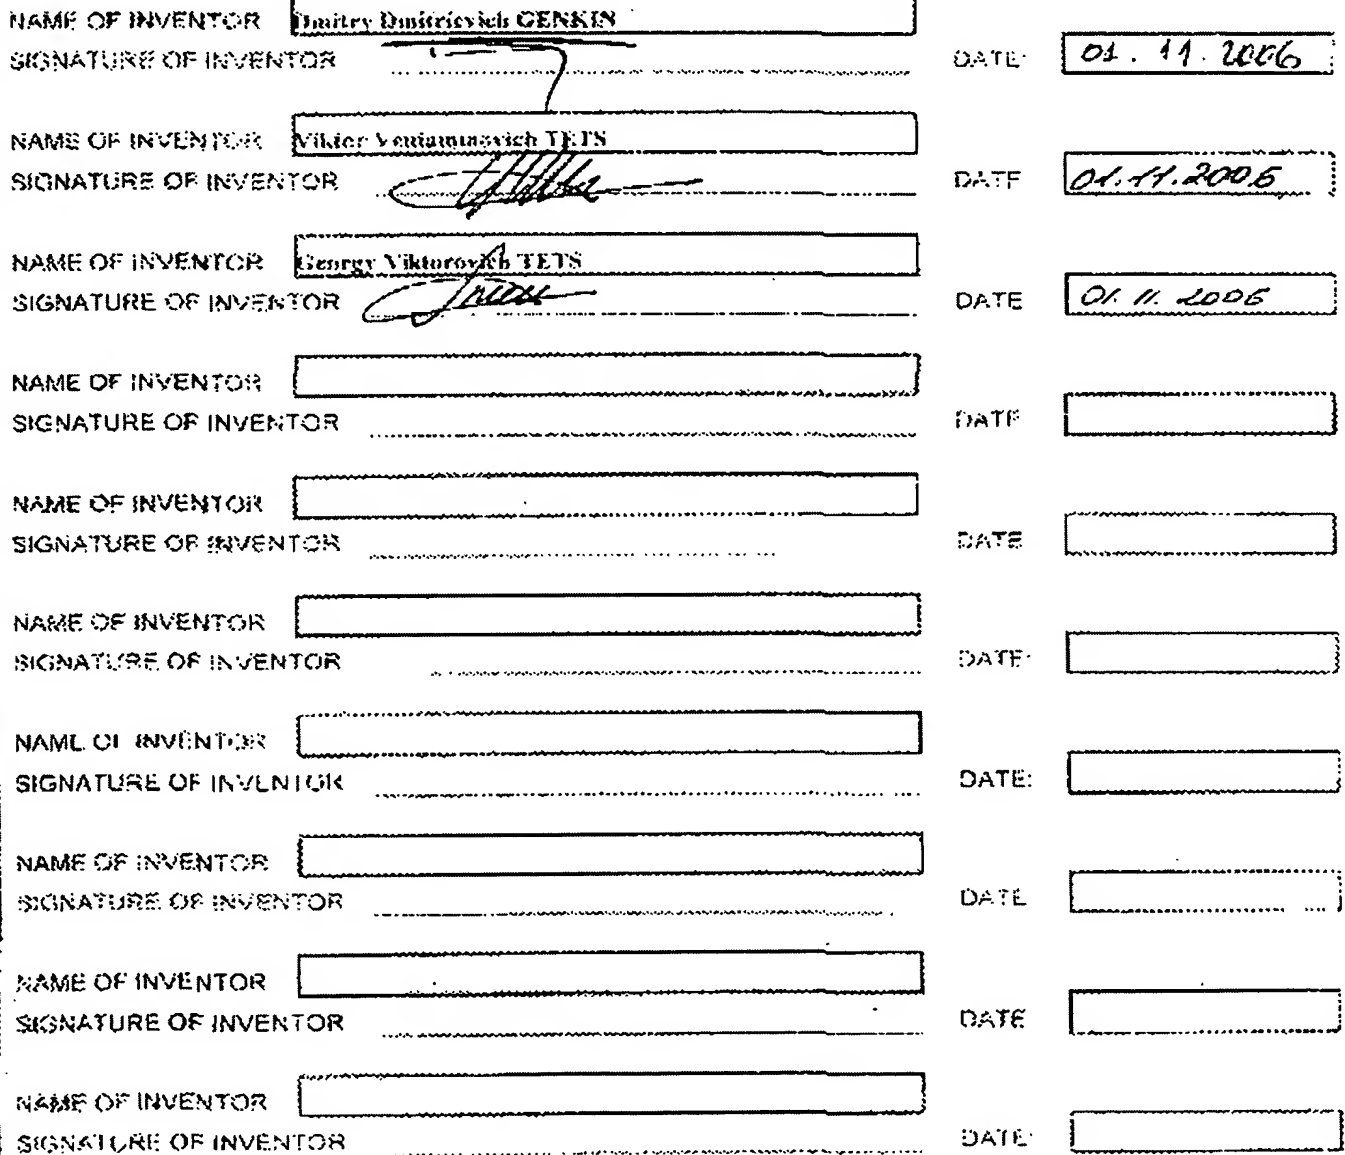 NAME OF INVENTOR Dmitry Dmitrievich GENKIN
SIGNATURE OF INVENTOR DATE: 01.11.2006
NAME OF INVENTOR Viktor Veniaminovich TETS
SIGNATURE OF INVENTOR DATE 01.11.2006
NAME OF INVENTOR Georgy Viktorovich TETS
SIGNATURE OF INVENTOR DATE 01.11.2006
NAME OF INVENTOR
SIGNATURE OF INVENTOR DATE
NAME OF INVENTOR
SIGNATURE OF INVENTOR DATE
NAME OF INVENTOR
SIGNATURE OF INVENTOR DATE:
NAME OF INVENTOR
SIGNATURE OF INVENTOR DATE:
NAME OF INVENTOR
SIGNATURE OF INVENTOR DATE
NAME OF INVENTOR
SIGNATURE OF INVENTOR DATE
NAME OF INVENTOR
SIGNATURE OF INVENTOR DATE: